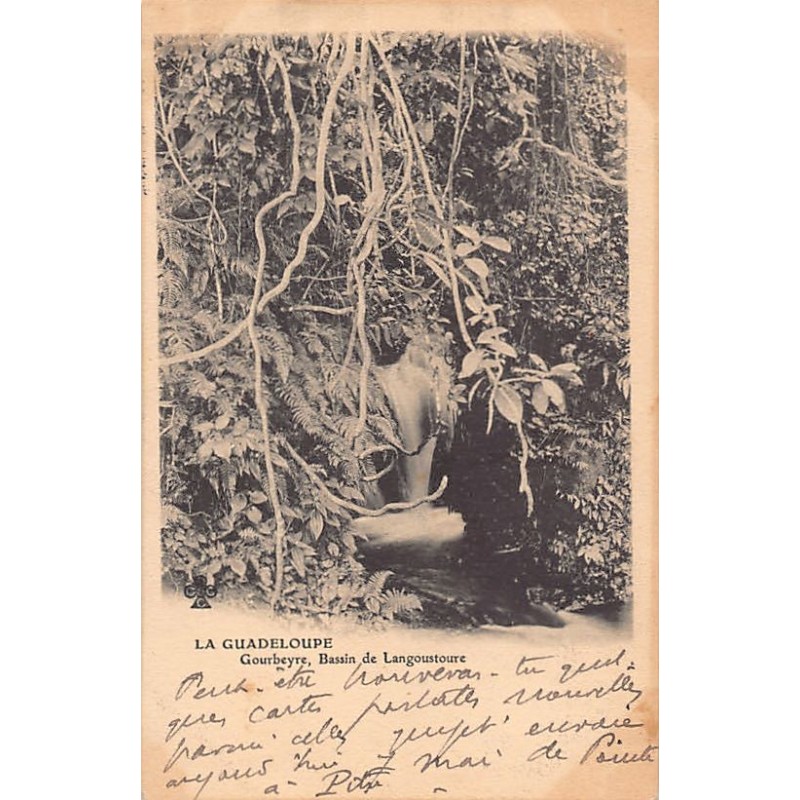 LA GUADELOUPE
Gourbeyre, Bassin de Langoustoure
Peut-être trouveras-tu quel-
ques cartes postales nouvelles
parmi celles que j'envoie
aujourd'hui 7 mai de Pointe
à Pitre